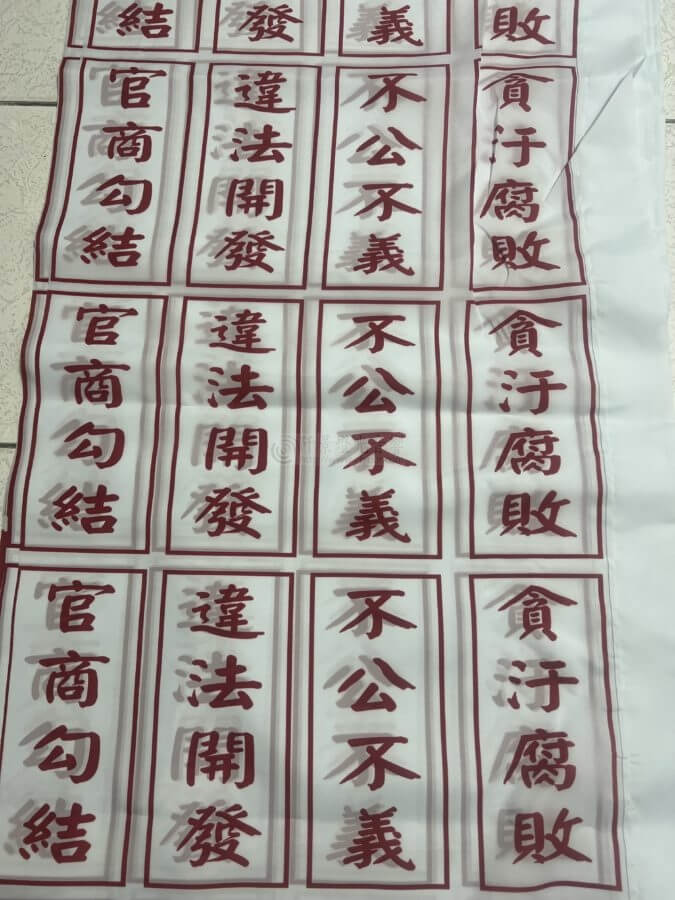 敗
義
發
結
貪汙腐敗
不公不義
違法開發
官商勾結
貪汙腐敗
不公不義
違法開發
官商勾結
貪汙腐敗
不公不義
違法開發
官商勾結